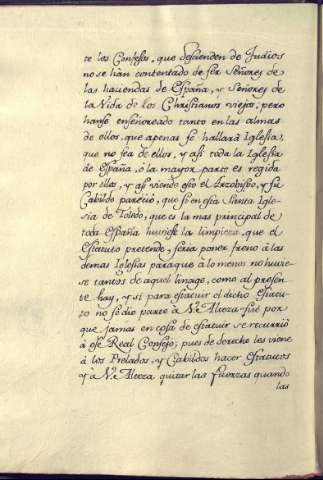 te los Confesos, que descienden de Judios
no se han contentado de ser Señores de
las haciendas de España, y Señores de
la Vida de los Christianos viejos, pero
hanse enseñoreado tanto en las almas
de ellos, que apenas se hallará Iglesia,
que no sea de ellos, y asi toda la Iglesia
de España, ó la mayor parte es regida
por ellos, y asi viendo esto el Arzobispo, y su
Cabildo pareció, que si en esta Santa Igle-
sia de Toledo, que es la mas principal de
toda España huviese la limpieza, que el
Estatuto pretende, seria poner freno á las
demas Iglesias para que á lo menos no huvie-
se tantos de aquel linage, como al presen-
te hay, y si para estatuir el dicho Estatu-
to no se dio parte á Vª. Alteza fué por
que jamas en cosa de estatuir se recurrió
á ese Real Consejo, pues de derecho les viene
á los Prelados, y Cabildos hacer Estatutos
y á Vª. Alteza quitar las fuerzas quando
las